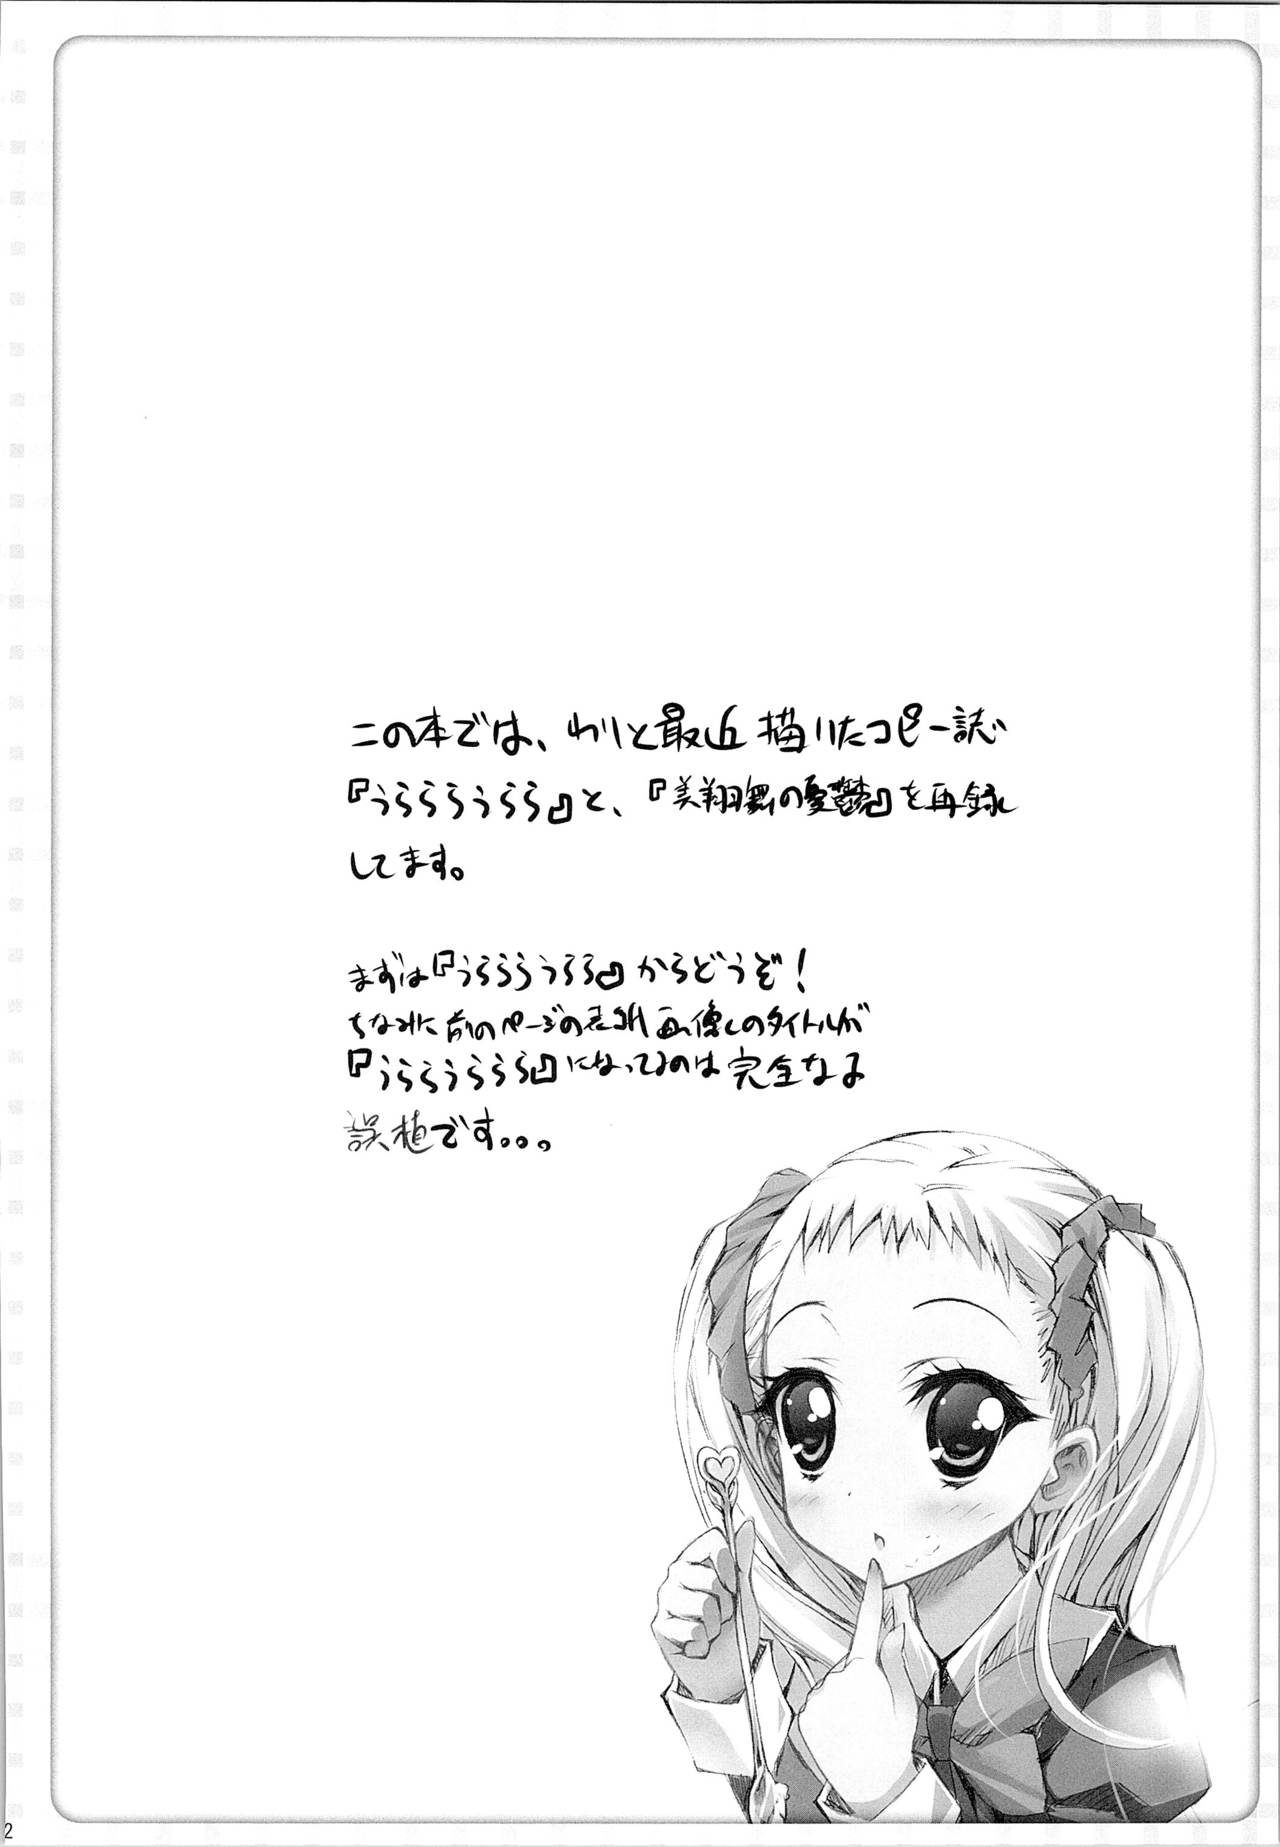 この本では、わりと最近描いたコピー誌
『うららららうらら』と、『美翔舞の憂鬱』を再録
してます。
まずは『うららららうらら』からどうぞ!
ちなみに前のページの表紙画像のタイトルが
『うらららうららら』になってるのは完全なる
誤植です。。。
2